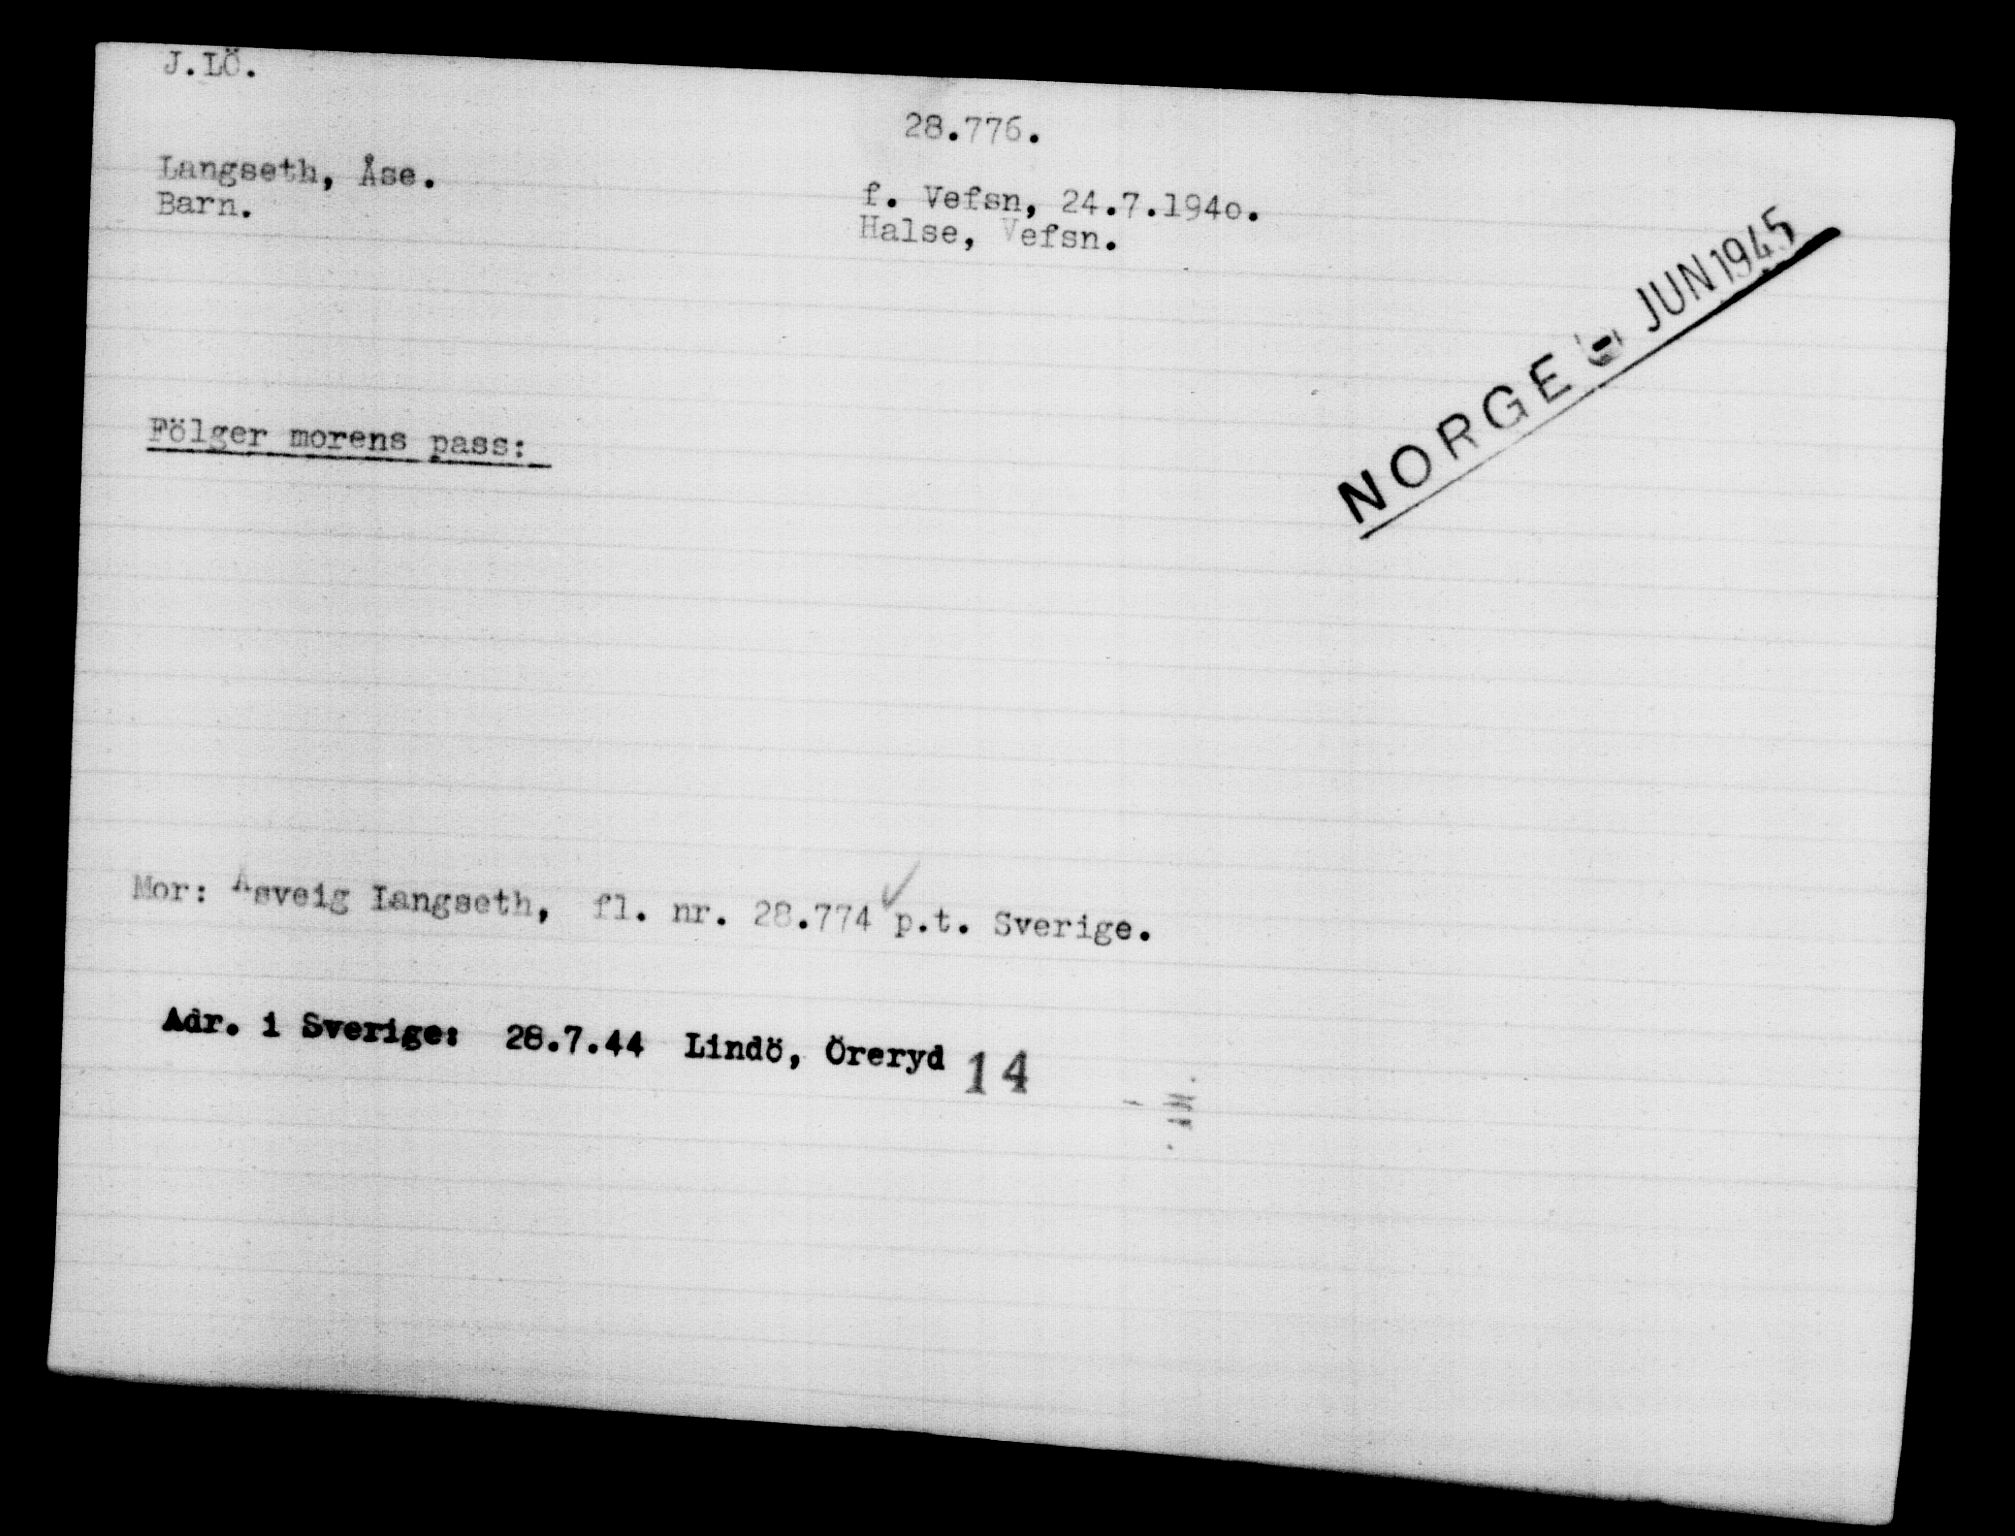 J.LÖ.
28.776.
Langseth, Åse.
Barn.
f. Vefsn, 24.7.194o.
Halse, Vefsn.
NORGE JUN 1945
Fölger morens pass:
Mor: Åsveig Langseth, fl. nr. 28.774 p.t. Sverige.
Adr. i Sverige: 28.7.44 Lindö, Öreryd 14